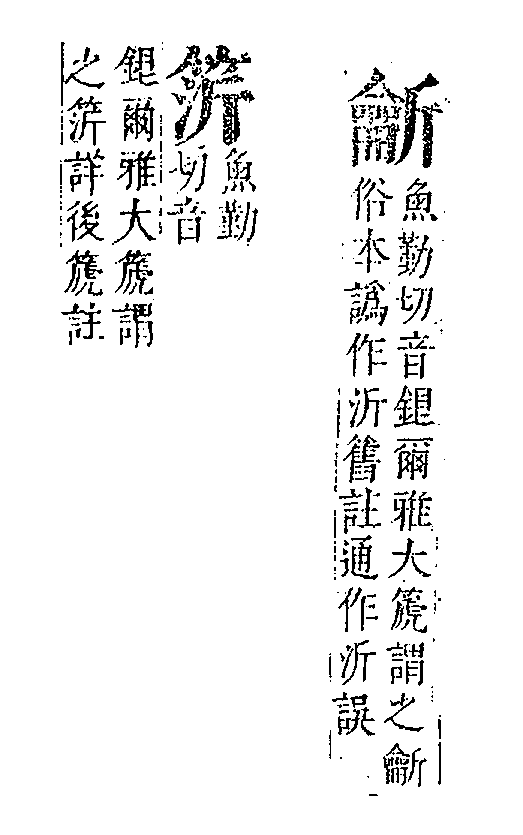 魚勤切音銀爾雅大篪謂之
俗本譌作沂舊註通作沂誤
魚勤
切音
銀爾雅大篪謂
之詳後篪註